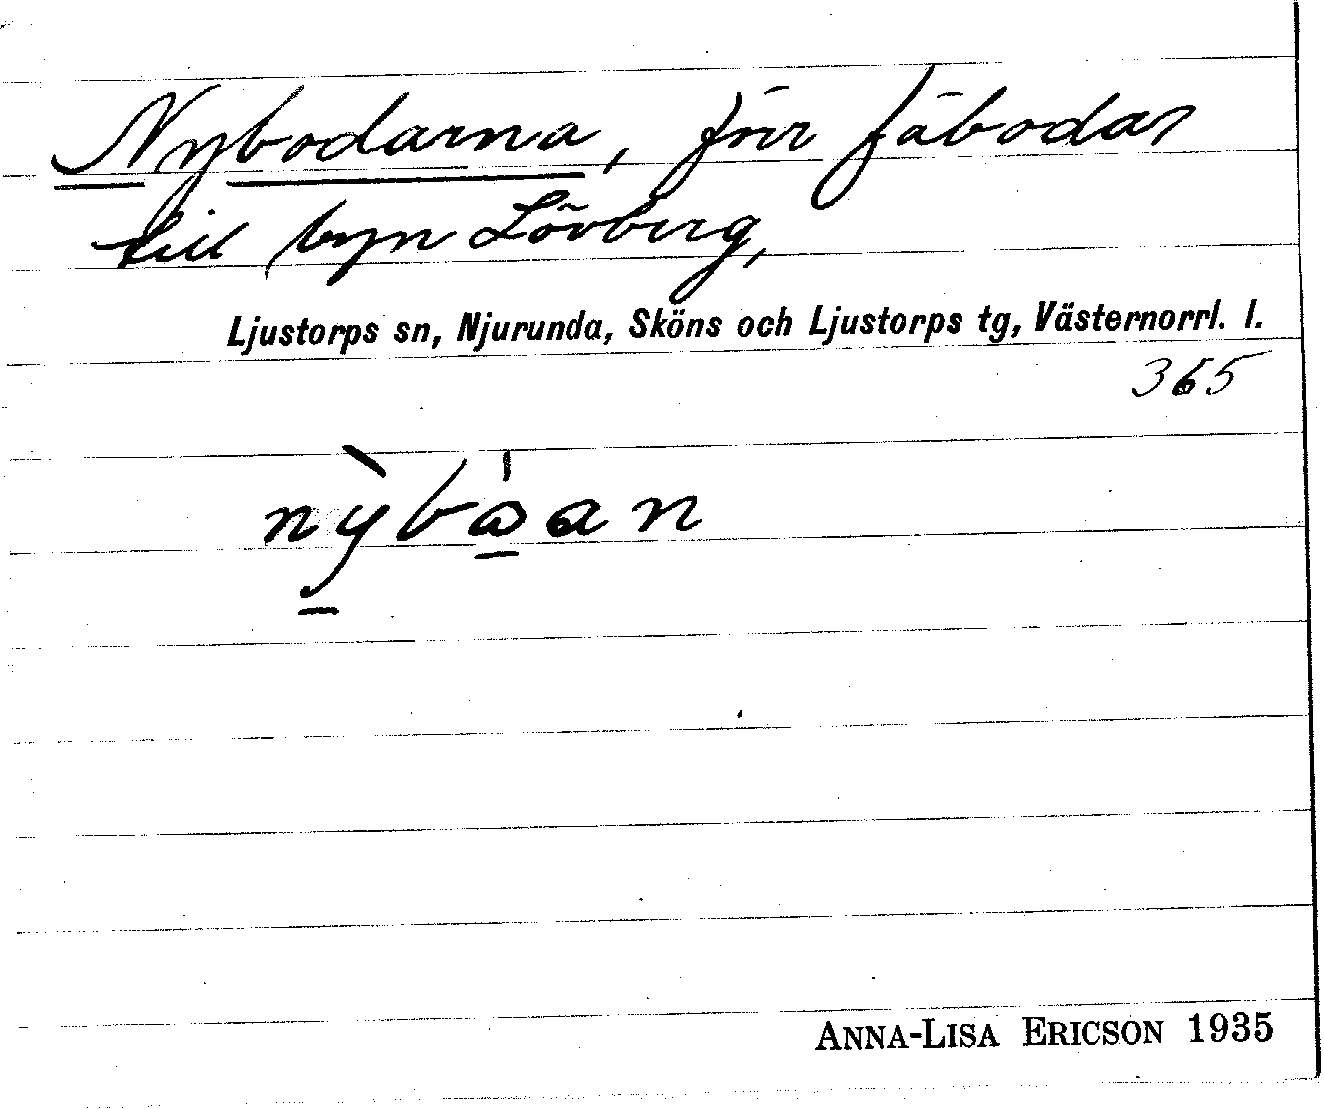 Nybodarna, förr fäbodar
till byn Lövberg,
Ljustorps sn, Njurunda, Sköns och Ljustorps tg, Västernorrl. l.
365
ANNA-LISA ERICSON 1935